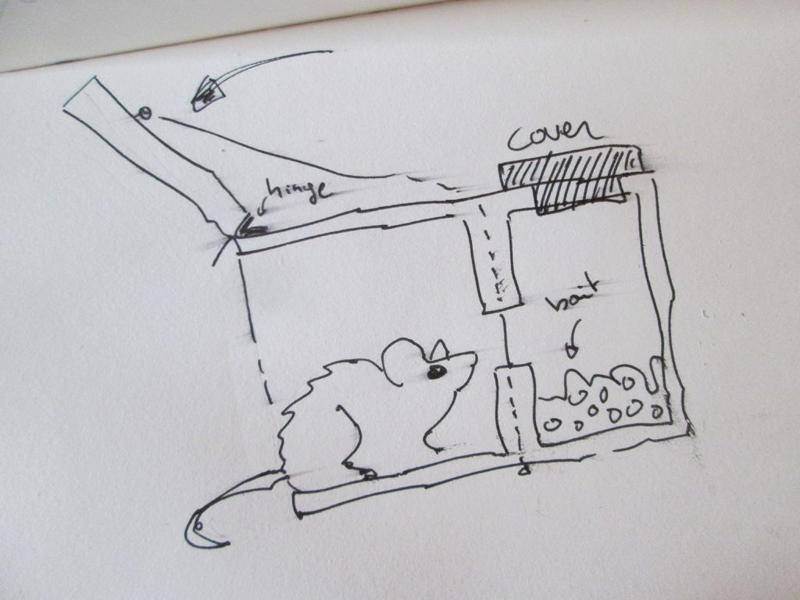 cover
hinge
bait